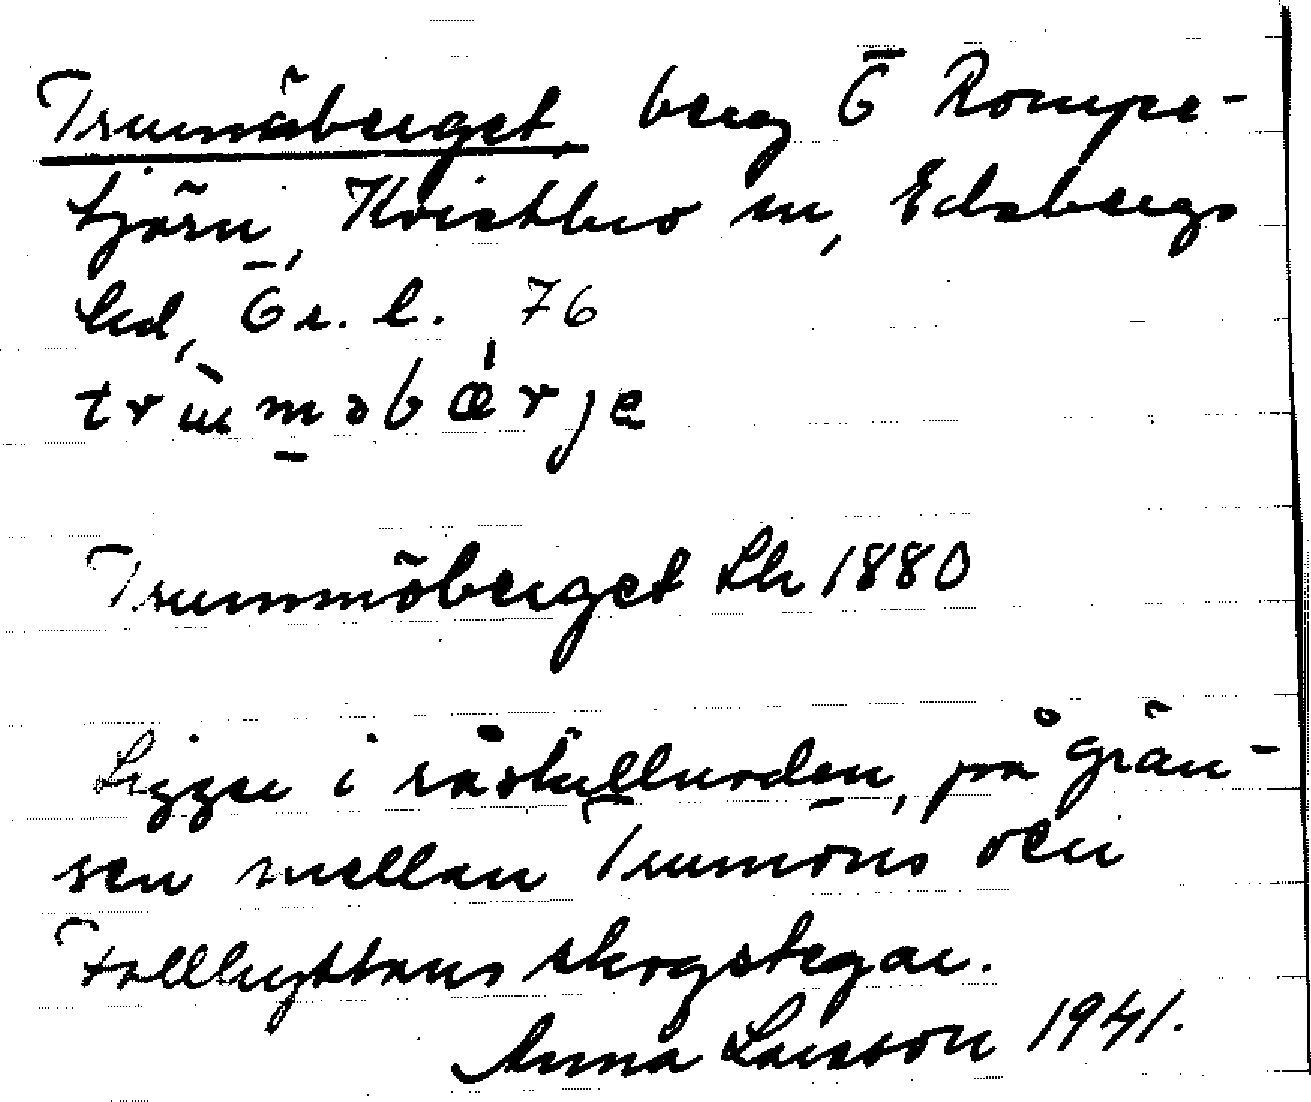 Trumöberget, berg Ö Rompe-
tjärn, Kvistbro sn, Edsbergs
hd, Ör. l. 76
trùmməbǽrje
Trummöberget Lk 1880
Ligger i råskillnaden, på grän-
sen mellan Trumöns och
Falkhyttans skogsägar.
Anna Larsson 1941.